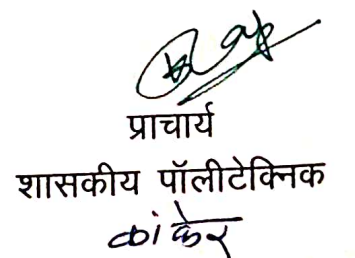 प्राचार्य
शासकीय पॉलीटेक्निक
कांकेर